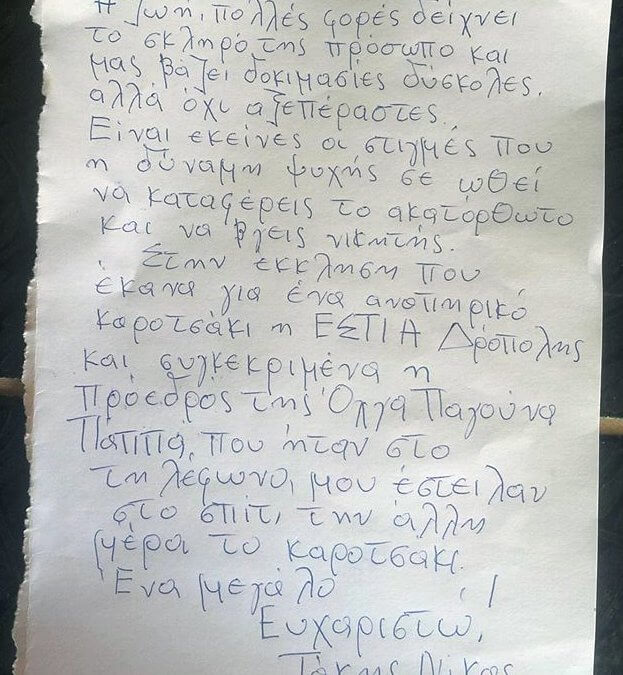 Η ζωή, πολλές φορές δείχνει
το σκληρό της πρόσωπο και
μας βάζει δοκιμασίες δύσκολες,
αλλά όχι αξεπέραστες.
Είναι εκείνες οι στιγμές που
η δύναμη ψυχής σε ωθεί
να καταφέρεις το ακατόρθωτο
και να βγεις νικητής.
Στην έκκληση που
έκανα για ένα αναπηρικό
καροτσάκι η ΕΣΤΙΑ Δρόπολης
και συγκεκριμένα η
Πρόεδρός της Όλγα Παγούνα
Πάππα, που ήταν στο
τηλέφωνο, μου έστειλαν
στο σπίτι την άλλη
μέρα το καροτσάκι.
Ένα μεγάλο
Ευχαριστώ,
Τάκης Νίκας